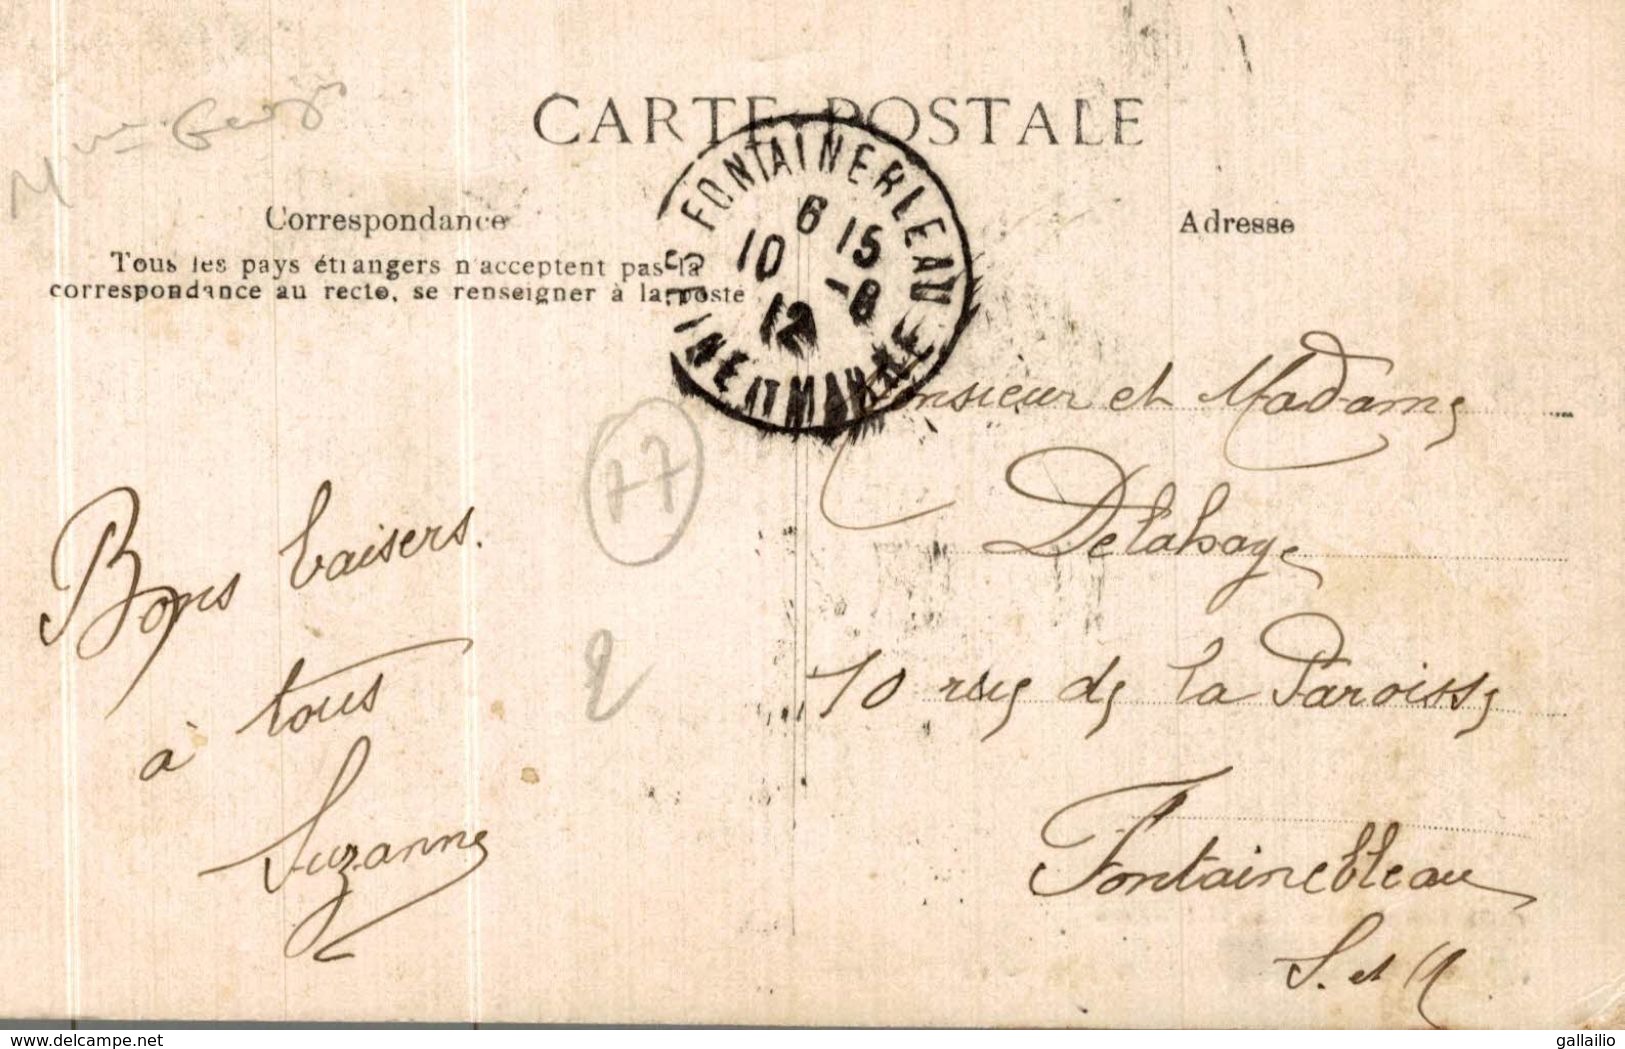 CARTE POSTALE
Correspondance
Adresse
Tous les pays étrangers n'acceptent pas la
correspondance au recto, se renseigner à la poste
FONTAINEBLEAU
6 15
10 -8
12
SEINE ET MARNE
Monsieur et Madame
Delahaye
10 rue de la Paroisse
Fontainebleau
S. et M
77
2
Bons baisers.
à tous
Suzanne
delcampe.net
gallailio